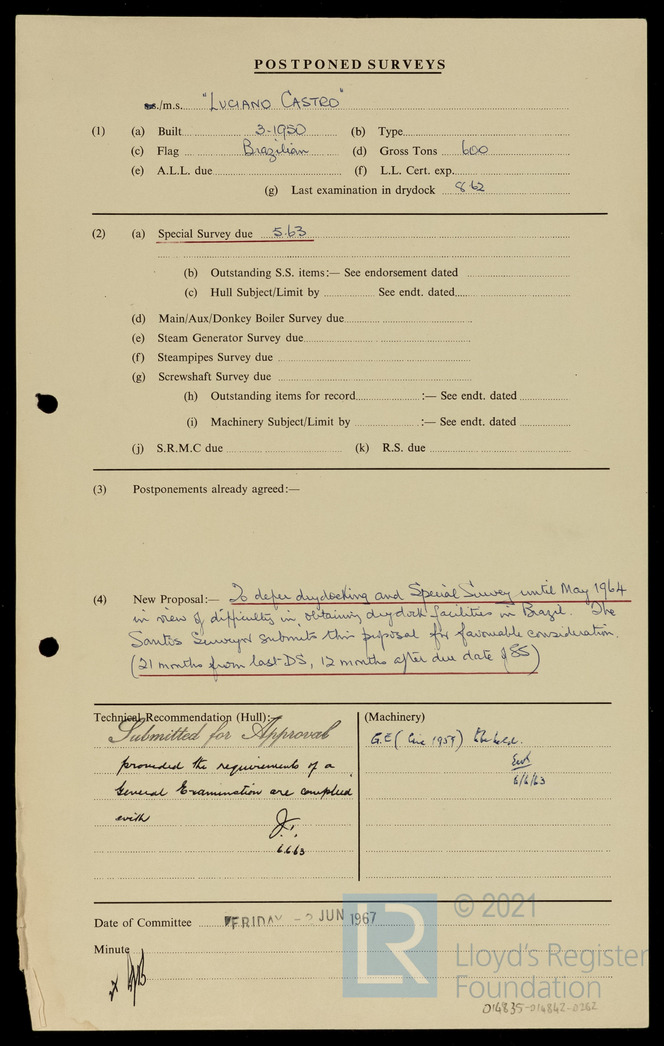 POSTPONED SURVEYS
ss./m.s. "LUCIANO CASTRO"
(1) (a) Built 3-1950 (b) Type
(c) Flag Brazilian (d) Gross Tons 600
(e) A.L.L. due (f) L.L. Cert. exp.
(g) Last examination in drydock 8.62
(2) (a) Special Survey due 5.63
(b) Outstanding S.S. items:— See endorsement dated
(c) Hull Subject/Limit by See endt. dated
(d) Main/Aux/Donkey Boiler Survey due
(e) Steam Generator Survey due
(f) Steampipes Survey due
(g) Screwshaft Survey due
(h) Outstanding items for record :— See endt. dated
(i) Machinery Subject/Limit by :— See endt. dated
(j) S.R.M.C due (k) R.S. due
(3) Postponements already agreed:—
(4) New Proposal:— To defer drydocking and Special Survey until May 1964
in view of difficulties in obtaining drydock facilities in Brazil. The
Santos Surveyor submits this proposal for favourable consideration.
(21 months from last DS, 12 months after due date of SS)
Technical Recommendation (Hull):— (Machinery)
Submitted for Approval
provided the requirements of a
General Examination are complied
with
6.6.63
G.E (Circ 1959) to be held.
6/6/63
Date of Committee FRIDAY - JUN 1967
Minute
© 2021
LR
Lloyd's Register
Foundation
014835-014842-0262